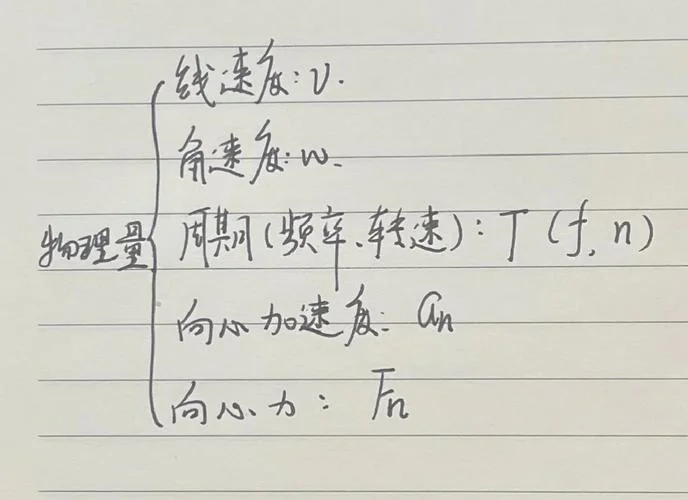 线速度:v.
角速度:w.
物理量
周期(频率、转速):T(f,n)
向心加速度:an
向心力:Fn